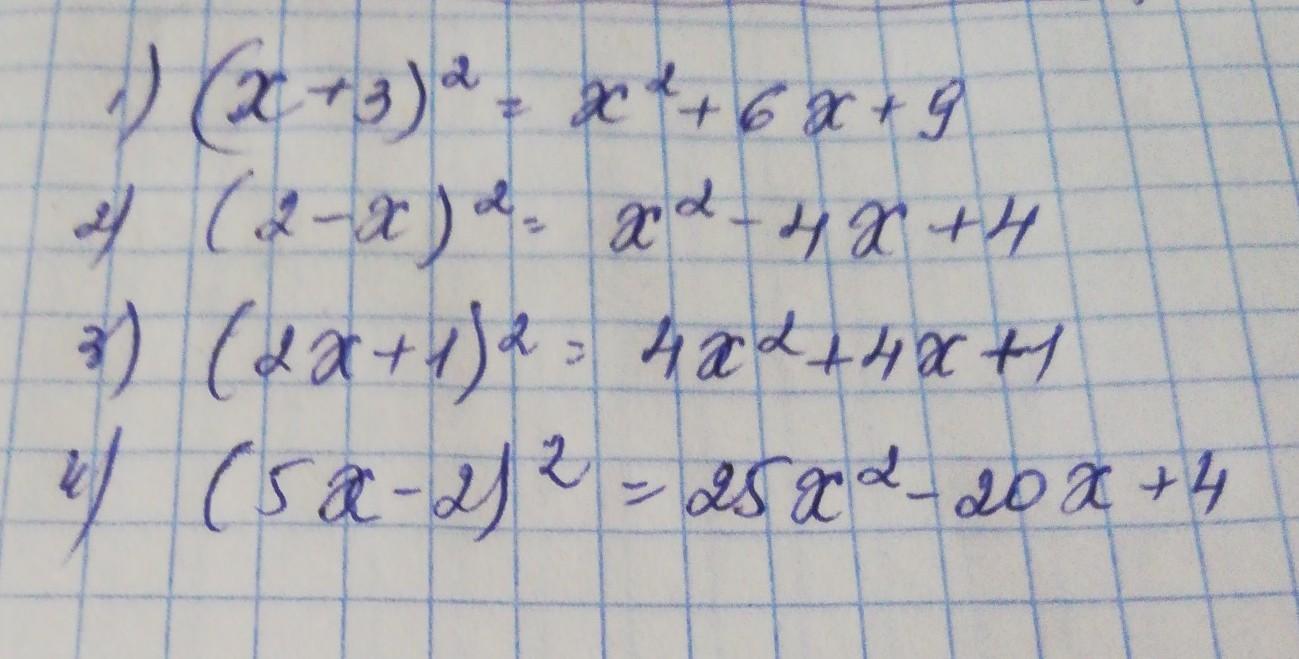 1) (x+3)² = x²+6x+9
2) (2-x)² = x²-4x+4
3) (2x+1)² = 4x²+4x+1
4) (5x-2)² = 25x²-20x+4